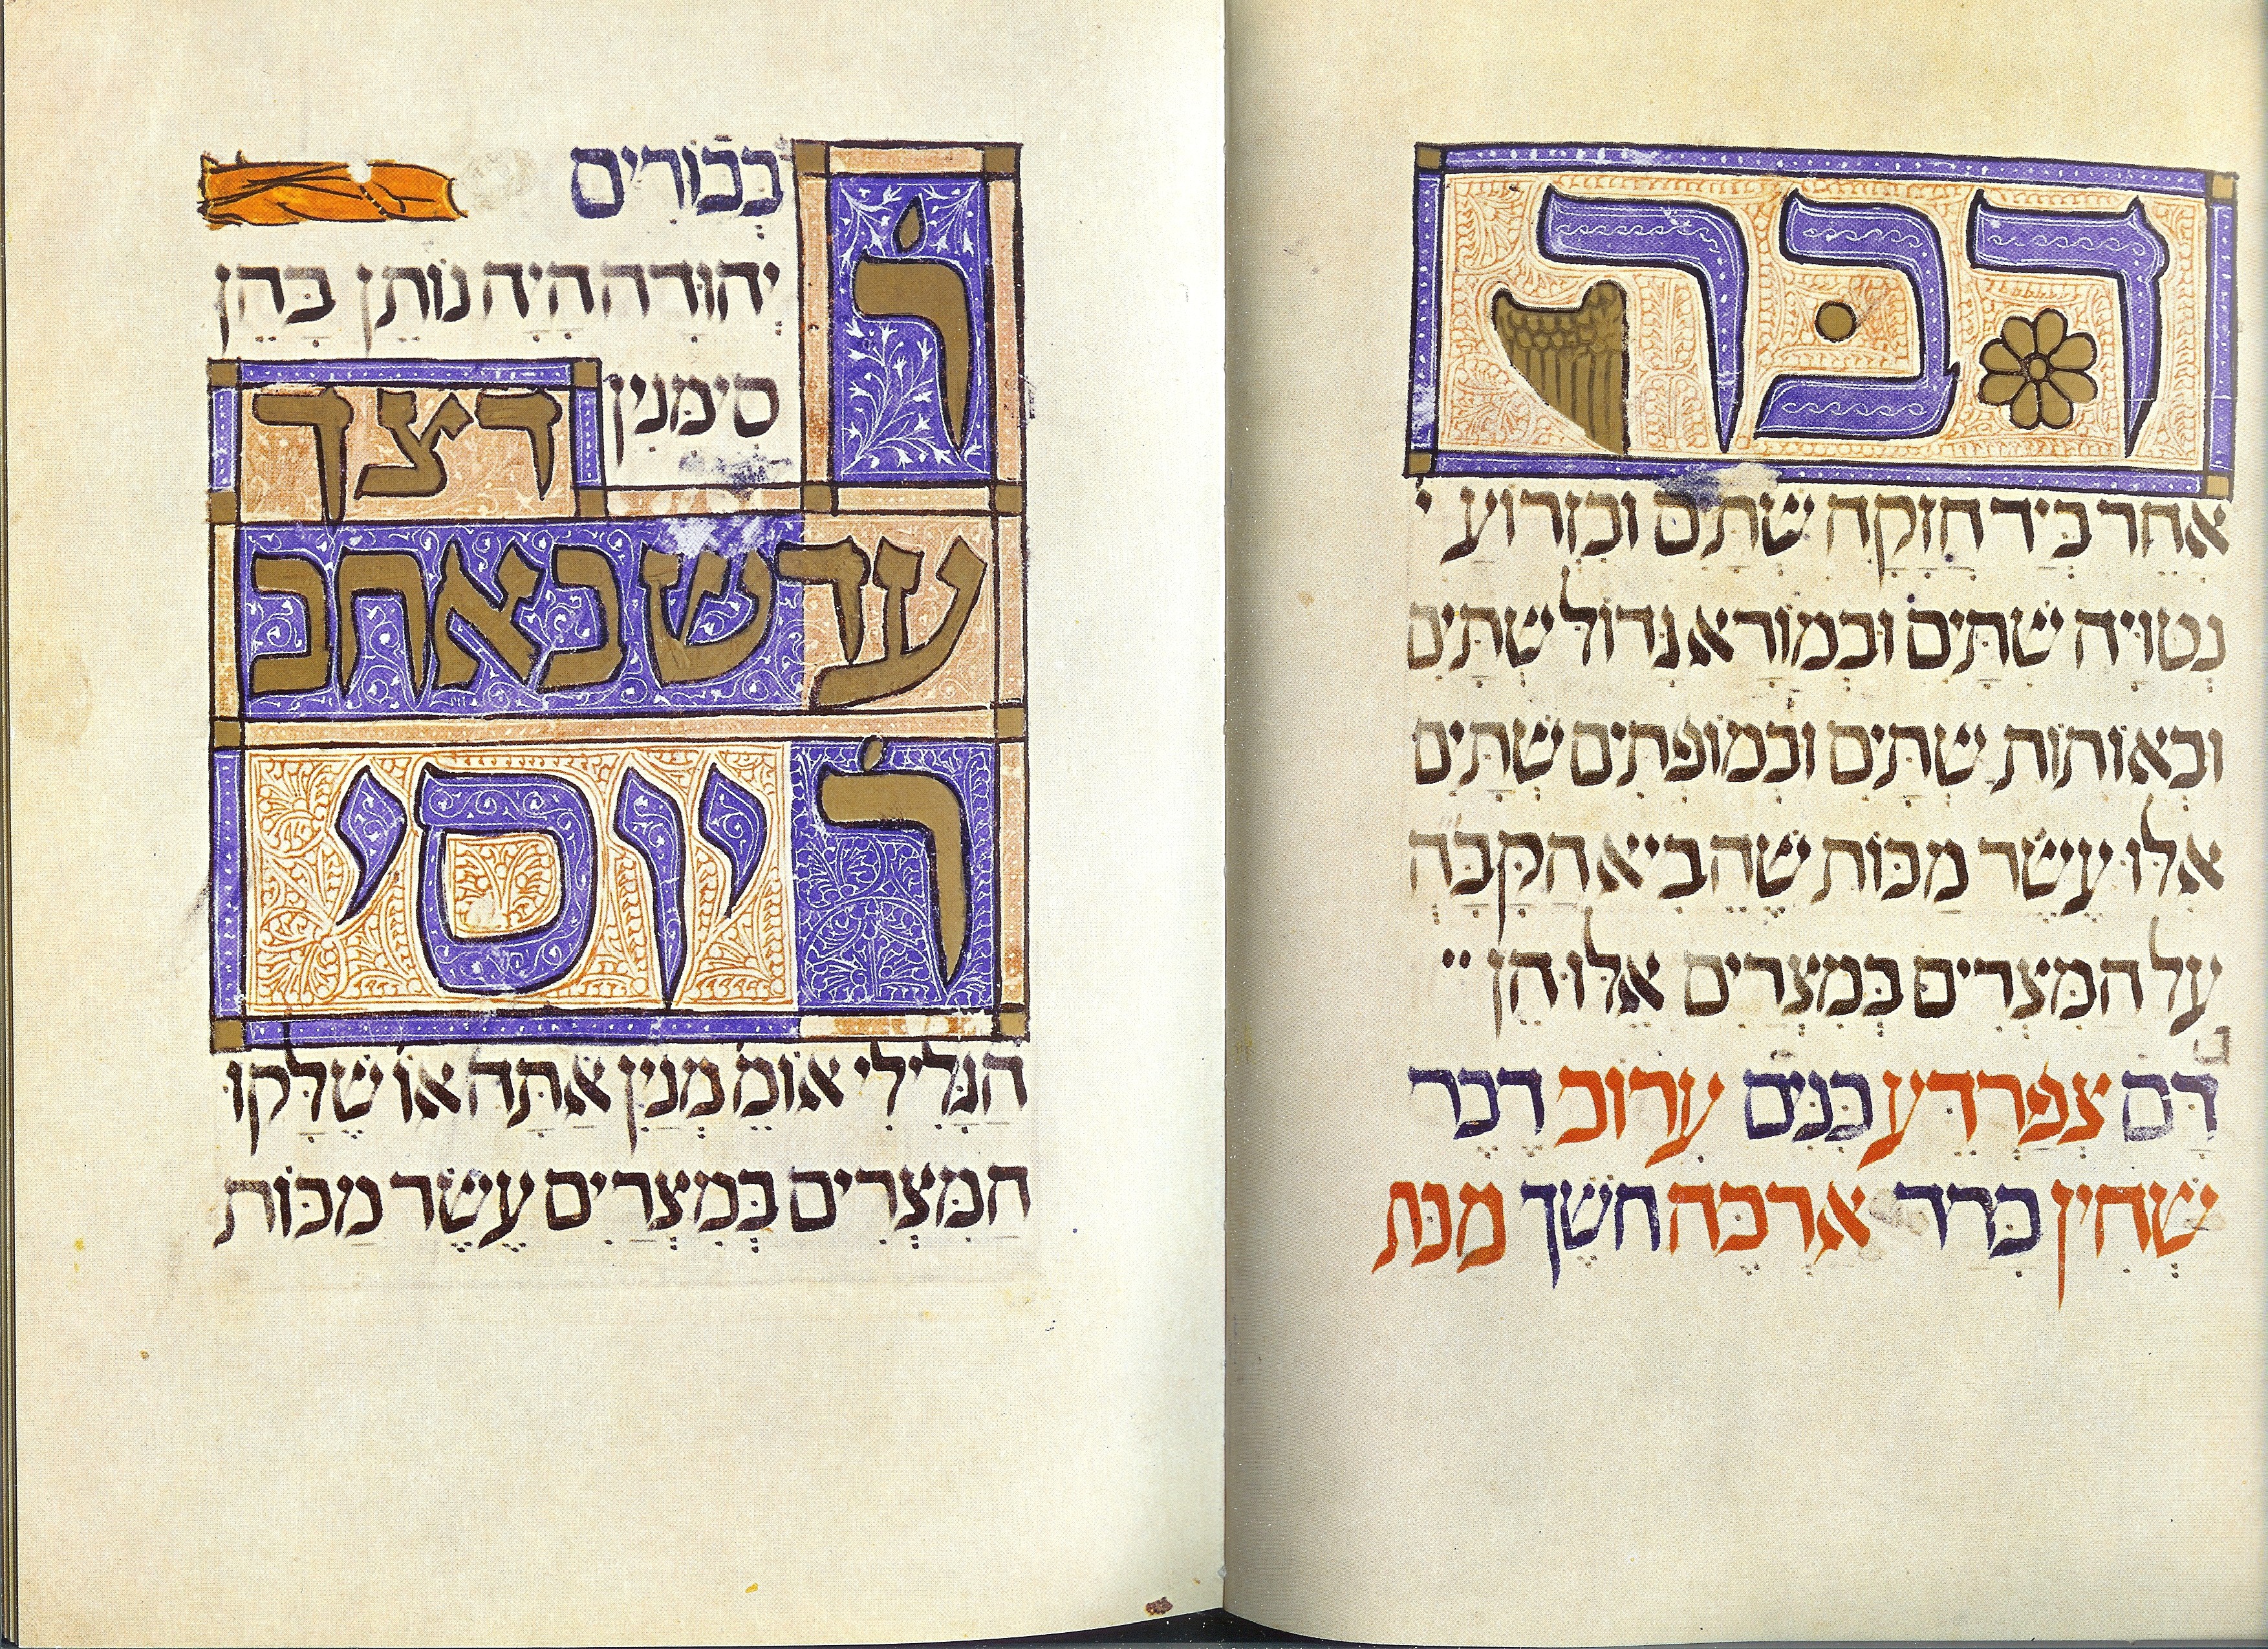 דבר
אַחֵר בְּיָד חֲזָקָה שְׁתַּיִם וּבִזְרוֹעַ י
נְטוּיָה שְׁתַּיִם וּבְמוֹרָא גָּדוֹל שְׁתַּיִם
וּבְאוֹתוֹת שְׁתַּיִם וּבְמוֹפְתִים שְׁתַּיִם
אִלּוּ עֶשֶׂר מַכּוֹת שֶׁהֵבִיא הַקָּבָּה
עַל הַמִּצְרִים בְּמִצְרַיִם אֵלּוּ הֵן
דָּם צְפַרְדֵּעַ כִּנִּים עָרוֹב דֶּבֶר
שְׁחִין בָּרָד אַרְבֶּה חֹשֶׁךְ מַכַּת
בְּכוֹרִים
ר
יְהוּדָה הָיָה נוֹתֵן בָּהֶן
סִימָּנִין דצך
עדש באחב
ר יוסי
הַגְּלִילִי אוֹמֵ מְנַיִן אַתָּה אוֹ שֶׁלָּקוּ
הַמִּצְרִים בְּמִצְרַיִם עֶשֶׂר מַכּוֹת